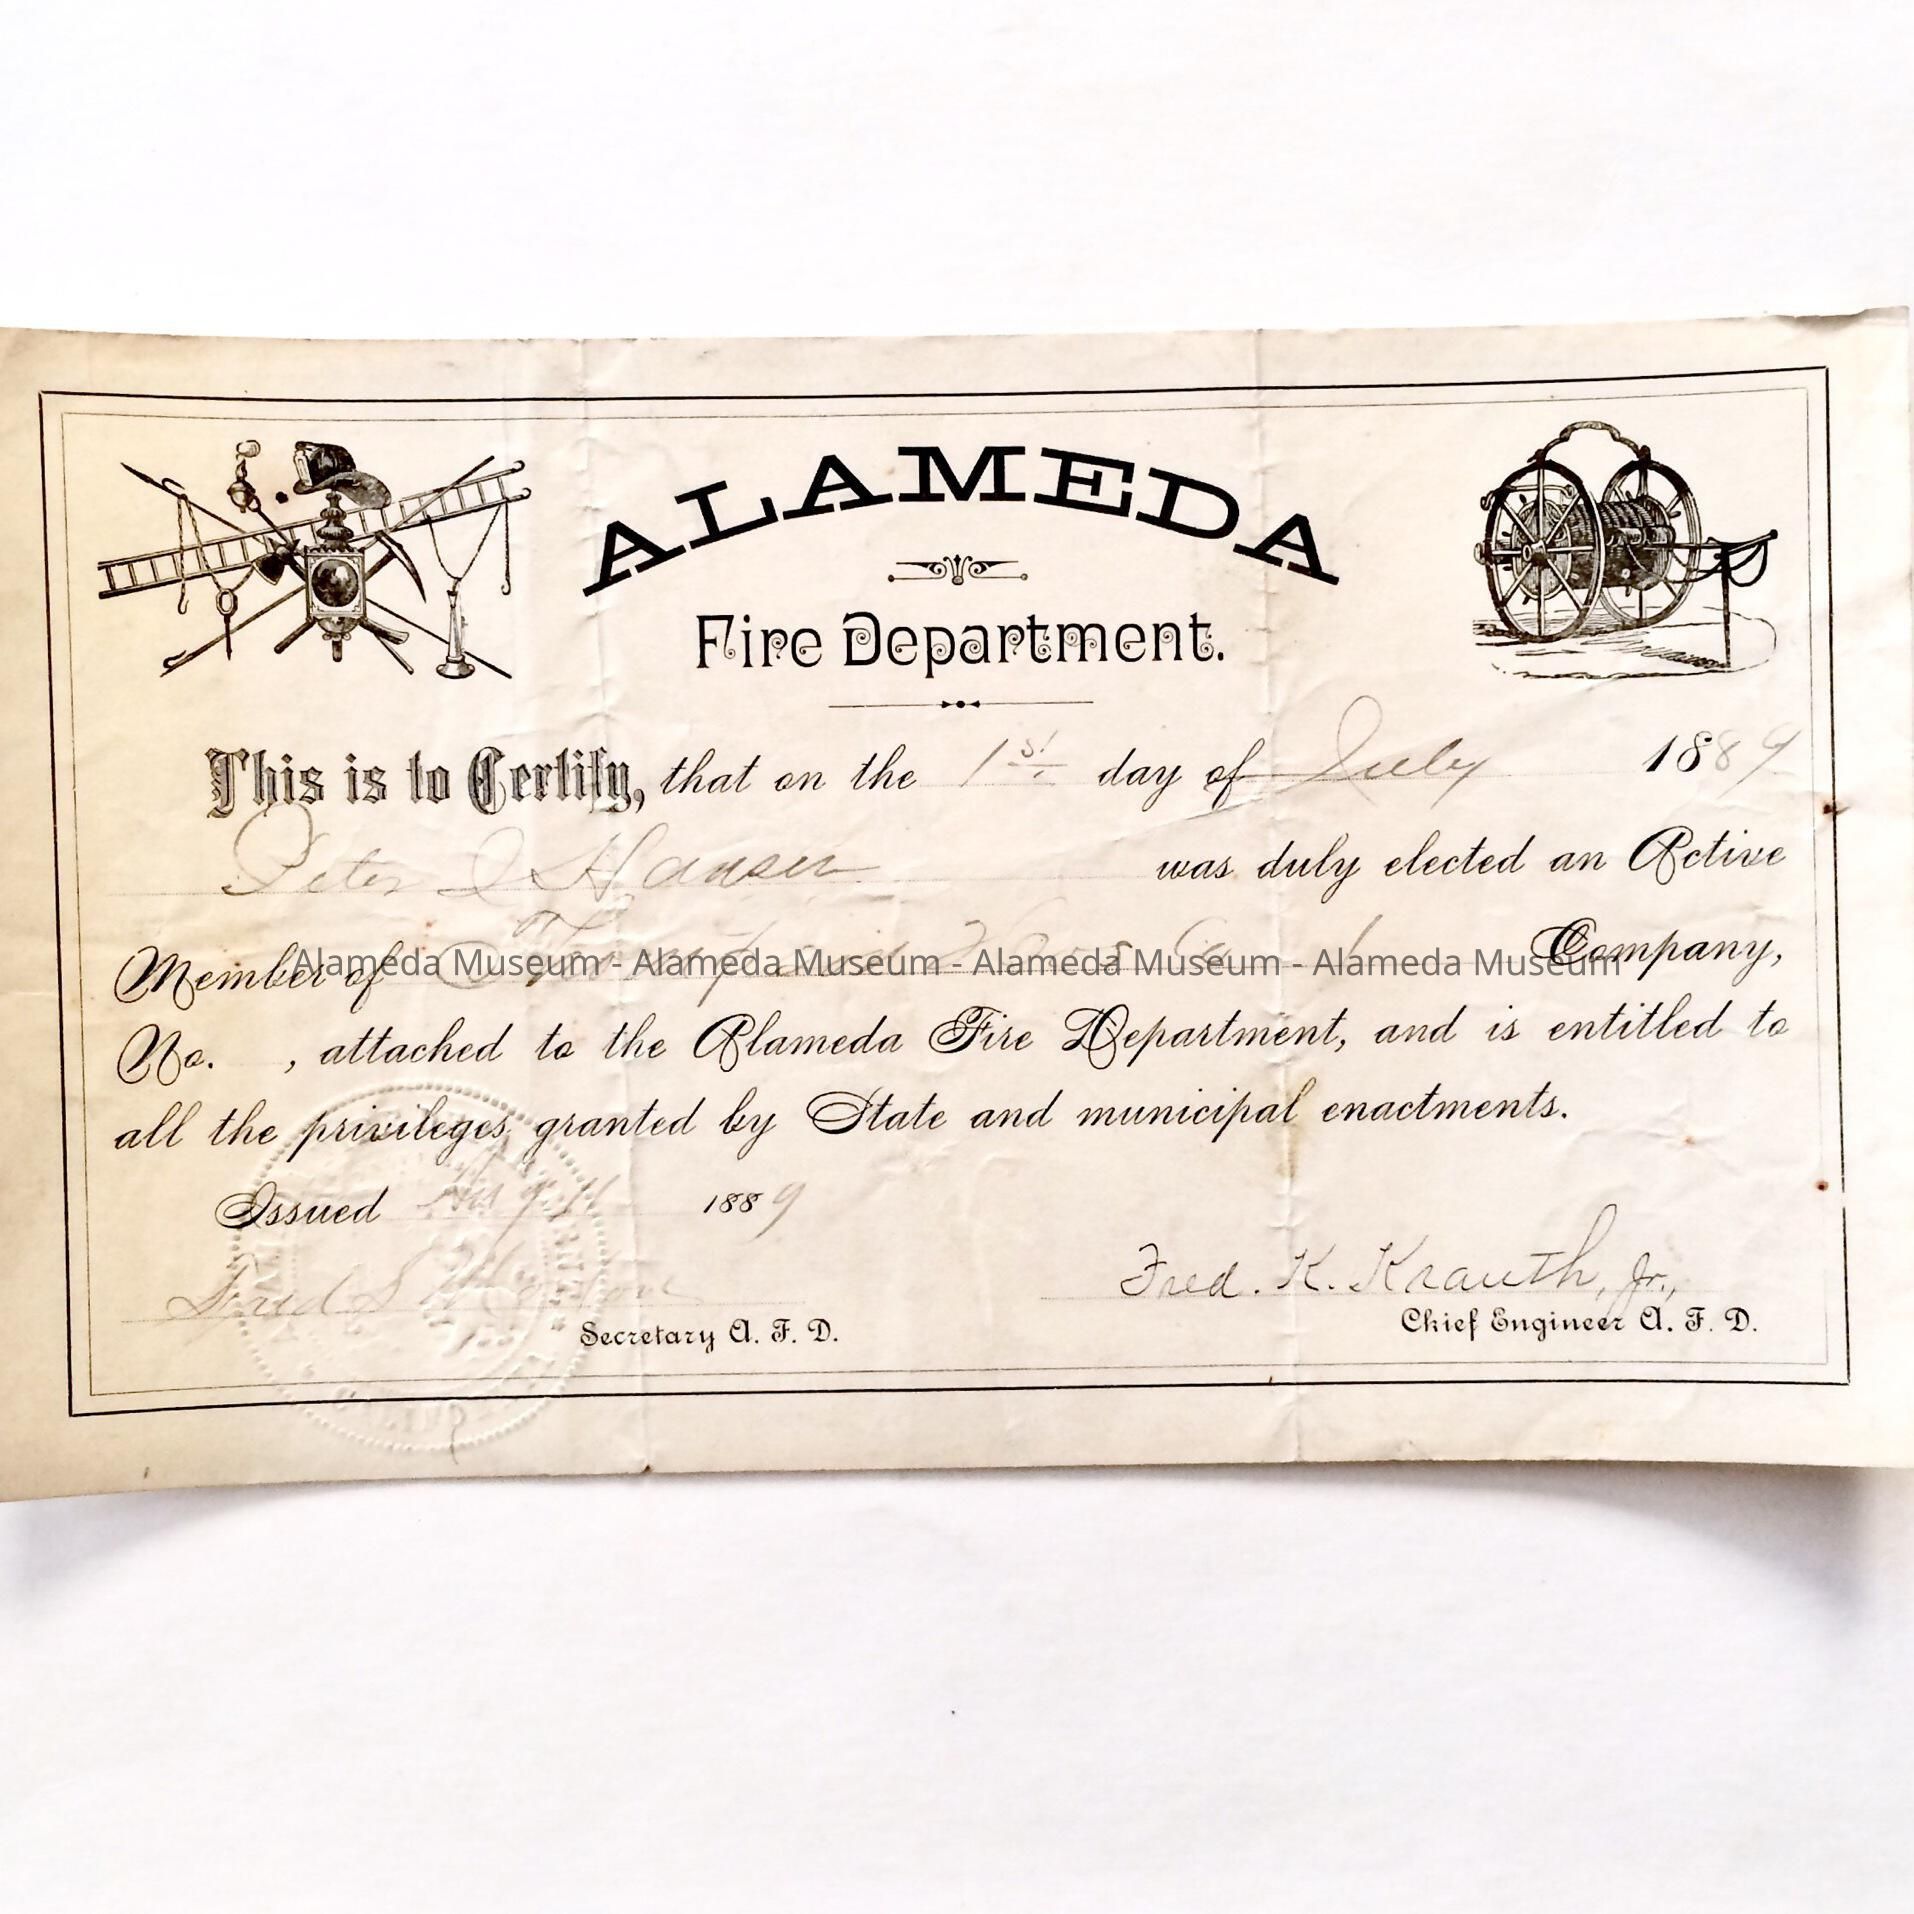 ALAMEDA
Fire Department.
This is to Certify, that on the 1st day of July 1889
Peter Hansen was duly elected an Active
Member of Company,
Alameda Museum - Alameda Museum - Alameda Museum - Alameda Museum
No. , attached to the Alameda Fire Department, and is entitled to
all the privileges granted by State and municipal enactments.
Issued 1889
Fred. K. Krauth, Jr.,
Secretary A. F. D. Chief Engineer A. F. D.